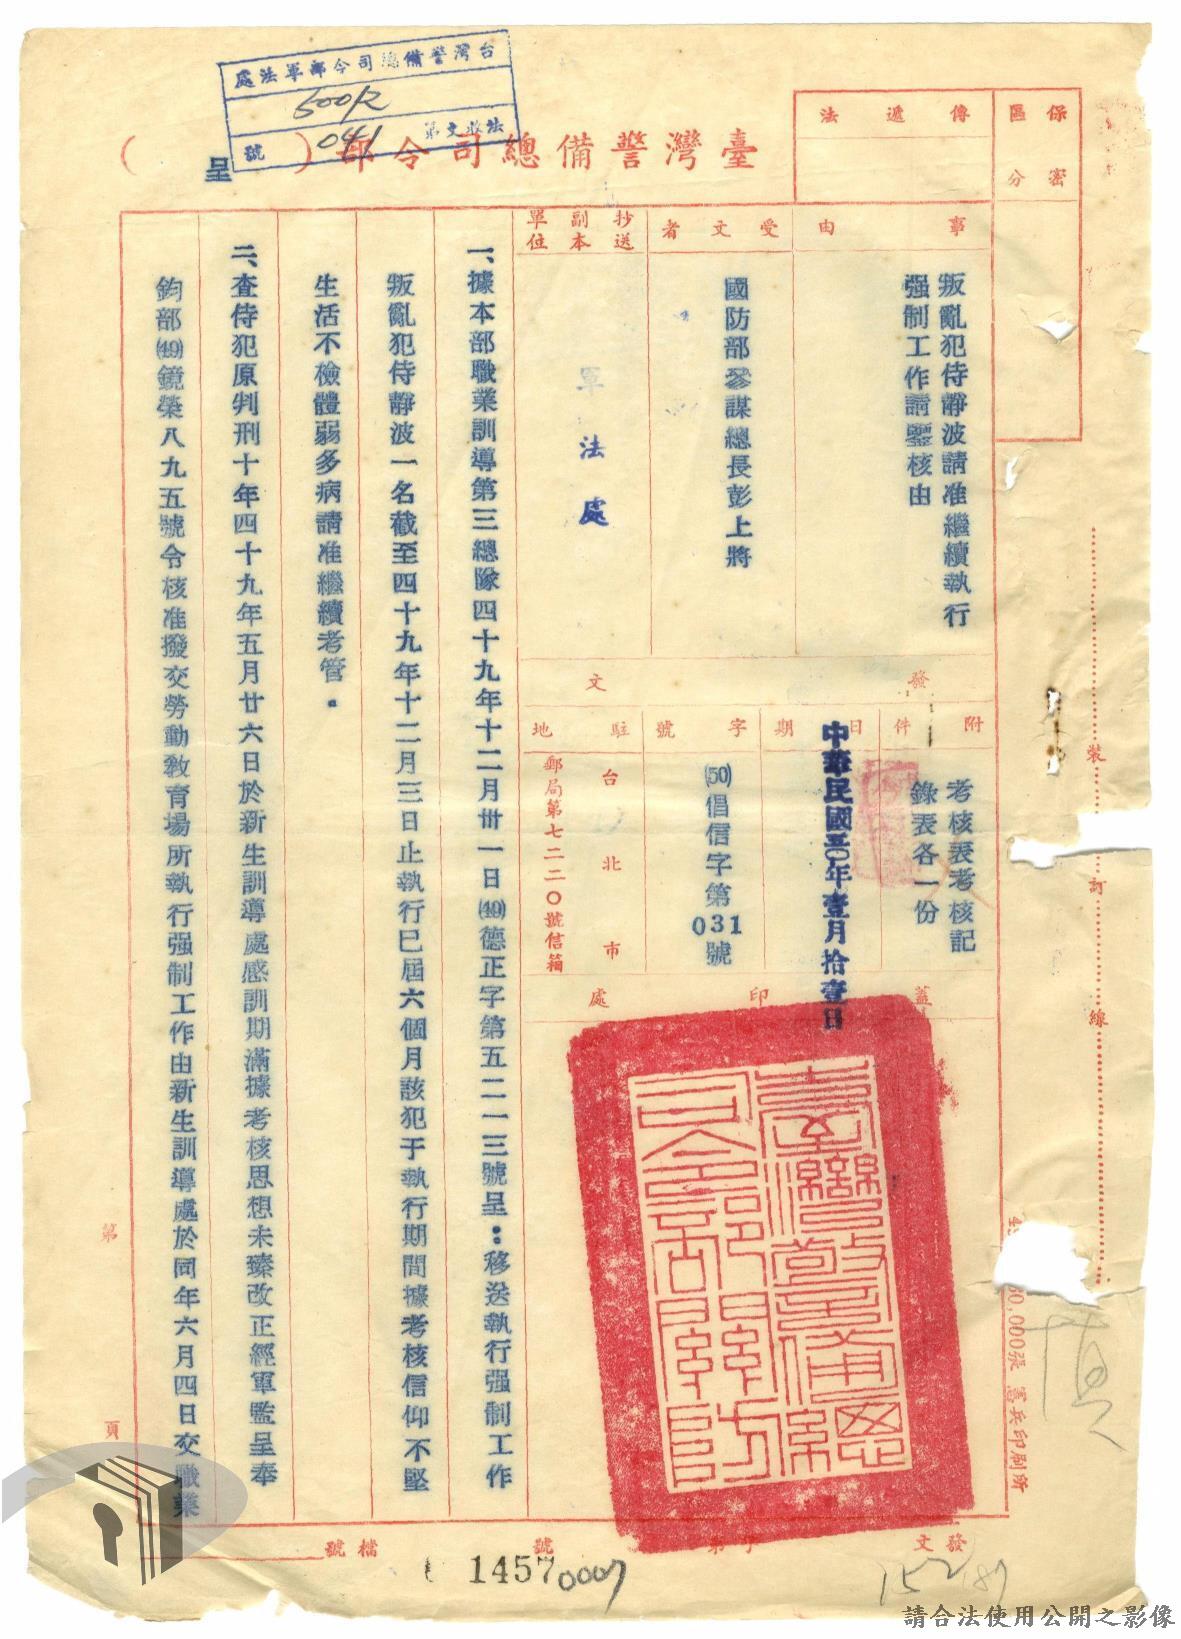 保密
區分
傳遞法
臺灣警備總司令部（呈）
台灣警備總司令部軍法處
法收文第
041
號
事由
叛亂犯侍靜波請准繼續執行
强制工作請鑒核由
受文者
國防部參謀總長彭上將
抄送
副本
單位
軍法處
發文
附件
考核表考核記
錄表各一份
日期
中華民國五〇年壹月拾壹日
字號
(50)倡信字第
031
號
駐地
台北市
郵局第七二二〇號信箱
蓋印處
臺灣警備總司令部關防
一、據本部職業訓導第三總隊四十九年十二月卅一日(49)德正字第五二一三號呈：移送執行强制工作
叛亂犯侍靜波一名截至四十九年十二月三日止執行已屆六個月該犯于執行期間據考核信仰不堅
生活不檢體弱多病請准繼續考管．
二、查侍犯原判刑十年四十九年五月廿六日於新生訓導處感訓期滿據考核思想未臻改正經軍監呈奉
鈞部(49)鏡榮八九五號令核准撥交勞動教育場所執行强制工作由新生訓導處於同年六月四日交職業
裝訂線
60,000張 憲兵印刷所
第頁
發文字第號
檔號
1457
0007
152
請合法使用公開之影像